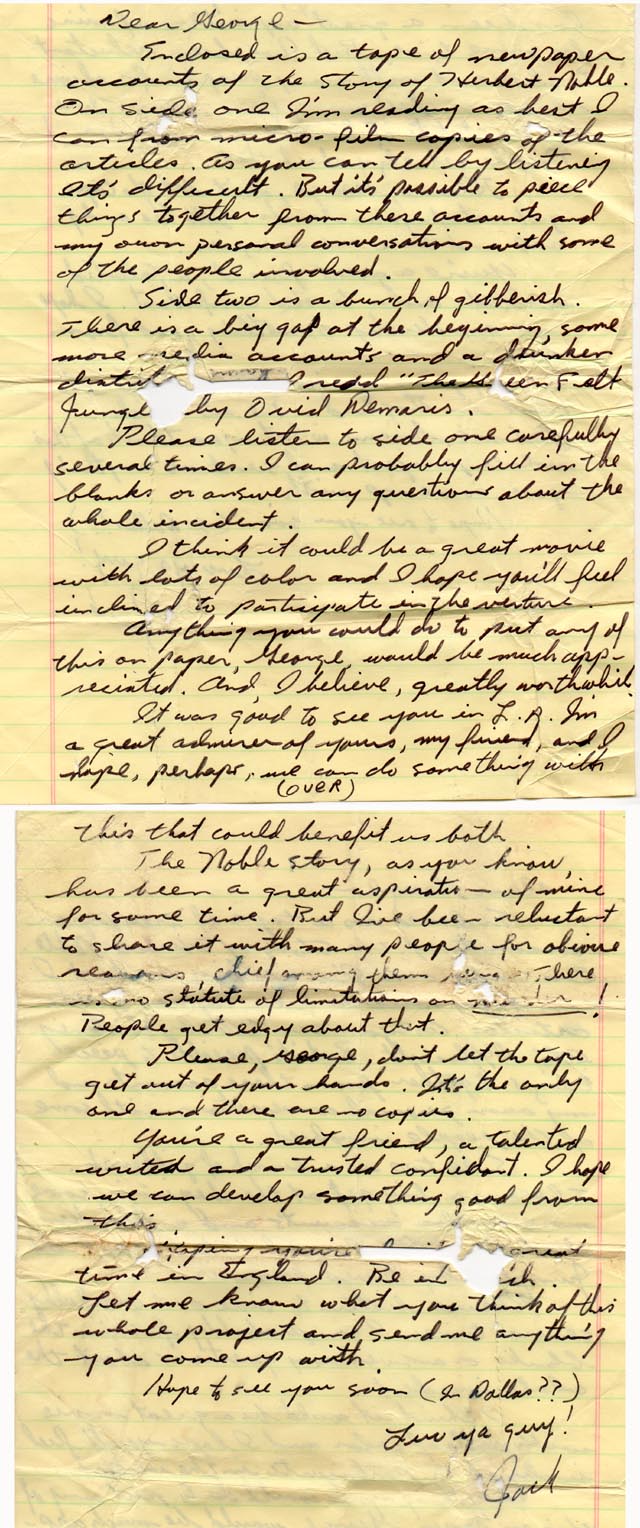 Dear George —
Enclosed is a tape of newspaper
accounts of the story of Herbert Noble.
On side one I'm reading as best I
can from micro-film copies of the
articles. As you can tell by listening
it's difficult. But it's possible to piece
things together from these accounts and
my own personal conversations with some
of the people involved.
Side two is a bunch of gibberish.
There is a big gap at the beginning, some
more media accounts and a drunken
I read "The Green Felt
Jungle by Ovid Demaris.
Please listen to side one carefully
several times. I can probably fill in the
blanks or answer any questions about the
whole incident.
I think it could be a great movie
with lots of color and I hope you'll feel
inclined to participate in the venture.
Anything you could do to put any of
this on paper, George, would be much app-
reciated. And, I believe, greatly worthwhile.
It was good to see you in L.A. I'm
a great admirer of yours, my friend, and I
hope, perhaps, we can do something with
(OVER)
this that could benefit us both
The Noble story, as you know,
has been a great aspiration of mine
for some time. But I've been reluctant
to share it with many people for obvious
reasons, chief among them There
is no statute of limitations on murder!
People get edgy about that.
Please, George, don't let the tape
get out of your hands. It's the only
one and there are no copies.
You're a great friend, a talented
writer and a trusted confidant. I hope
we can develop something good from
this.
Hoping you're great
time in England. Be in
Let me know what you think of this
whole project and send me anything
you come up with.
Hope to see you soon (In Dallas??)
Luv ya guy!
Jack